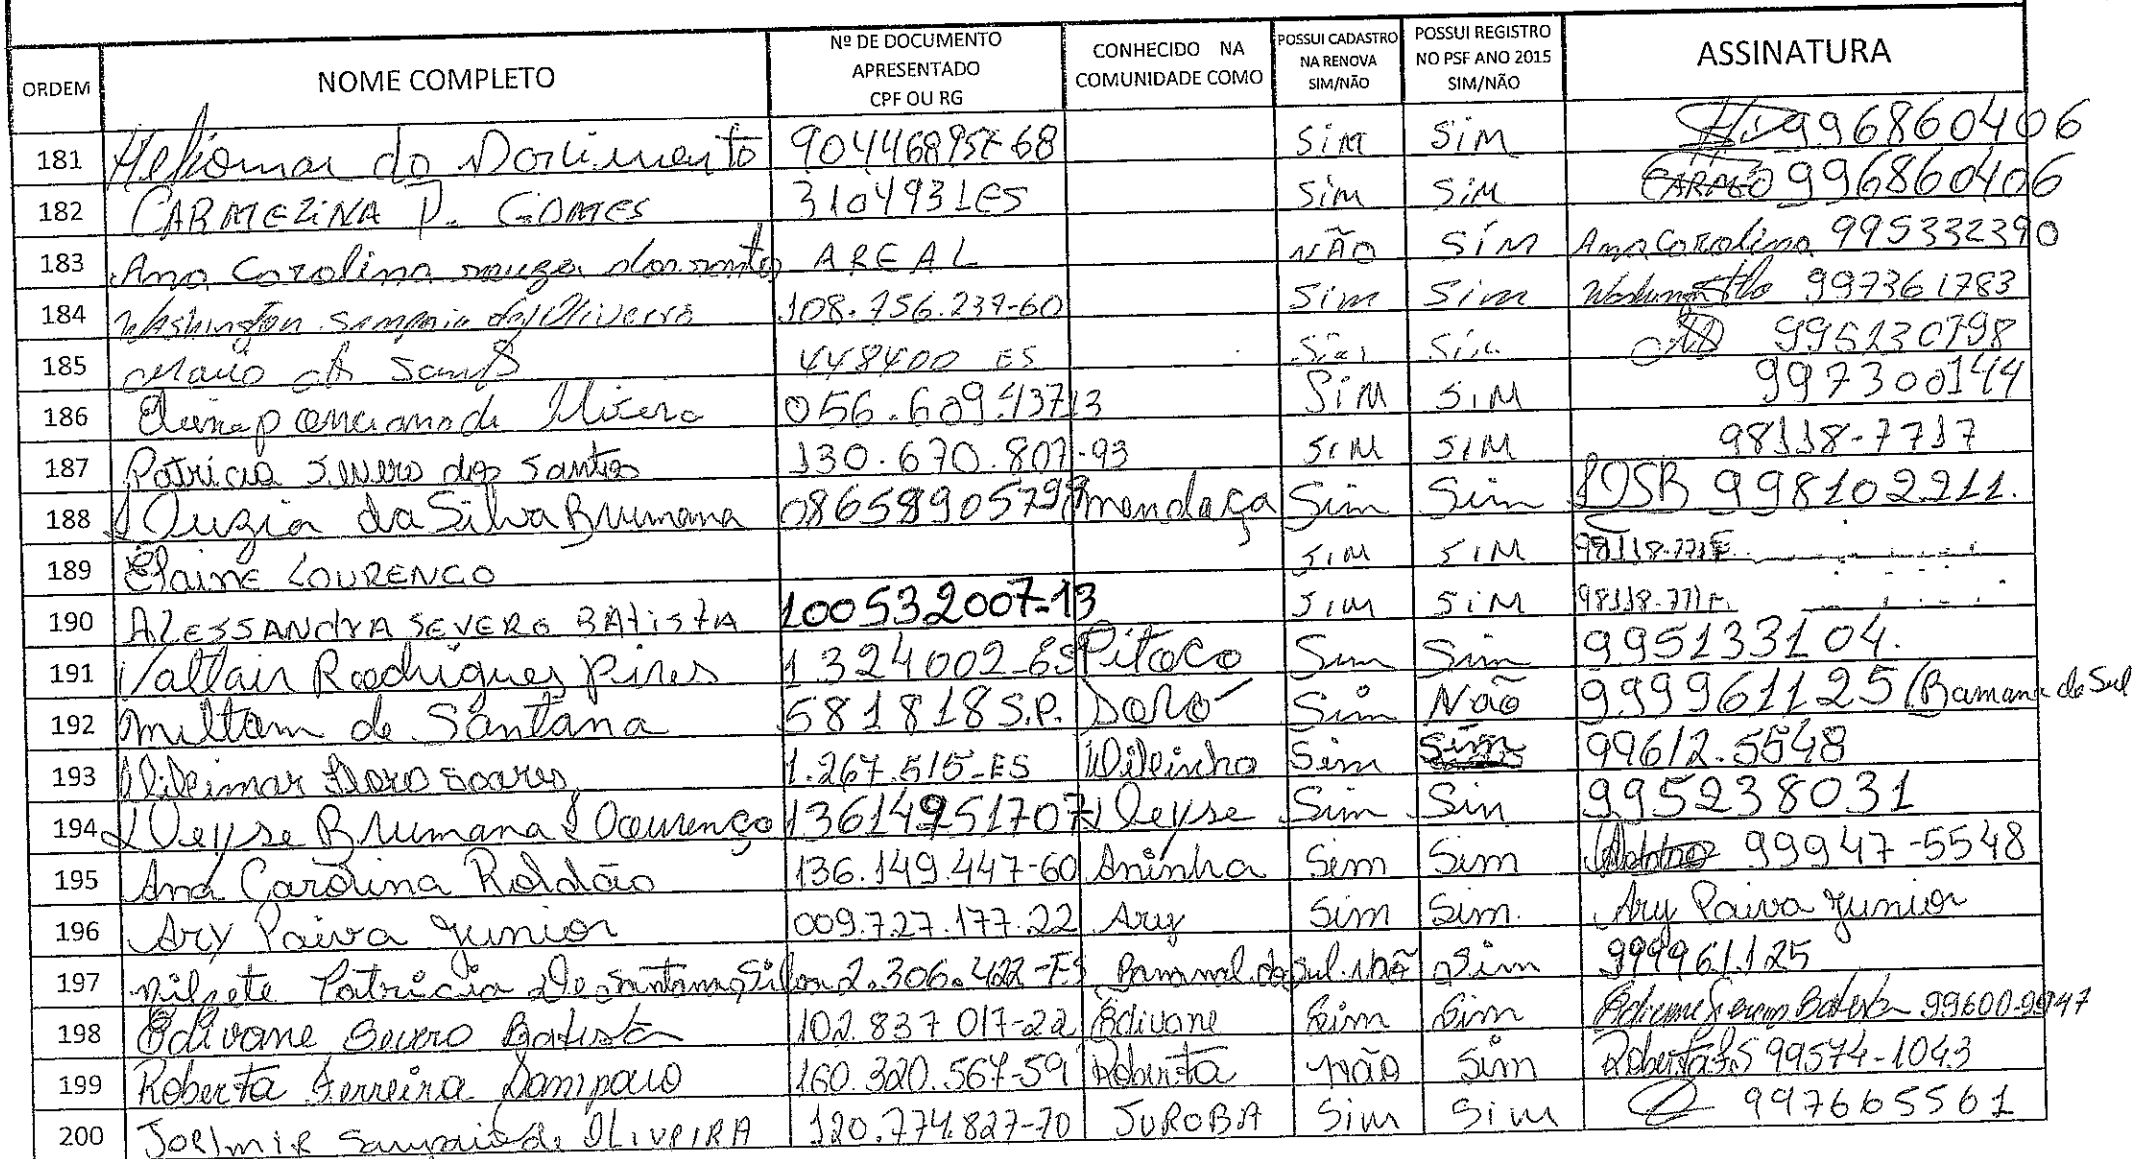 ORDEM NOME COMPLETO Nº DE DOCUMENTO APRESENTADO CPF OU RG CONHECIDO NA COMUNIDADE COMO POSSUI CADASTRO NA RENOVA SIM/NÃO POSSUI REGISTRO NO PSF ANO 2015 SIM/NÃO ASSINATURA
181 do SiM SiM 996860406
182 CARMEZiNA P. GOMES 3104931ES SiM SiM 996860406
183 Ana Carolina souza dos santos AREAL NÃO SiM Ana Carolina 995332390
184 Washington Sampaio de Oliveira 108.756.237-60 Sim Sim 997361783
185 448400 ES 995130798
186 056.609.437 13 SiM SiM 997300144
187 Patricia Severo dos Santos 130.670.807-93 SiM SiM 98118-7717
188 Luzia da Silva Brumana mendaça Sim Sim LDSB 998102211.
189 Elaine LOURENCO SiM SiM
190 AlESSANdrA SEVERO BAtistA 100532007-13 SiM SiM
191 Valtair Rodrigues pires 1324002-ES Pitoco Sim Sim 995133104.
192 miltom de Santana 581818 S.P. Doró Sim Não 999961125 (Banana do Sul
193 Wileimar Soares 1.267.515-ES Wileinho Sim Sim 99612.5548
194 Deyse Brumana Lourenço 13614951707 Deyse Sim Sin 995238031
195 Ana Carolina Roldão 136.149.447-60 Aninha Sim Sim 99947-5548
196 Ary Paiva Junior 009.727.177.22 Ary Sim Sim. Ary Paiva Junior
197 nilzete Patricia De santana Silva 2.306.422-ES Bananal do Sul não Sim 999961125
198 Edivane Severo Batista 102.837 017-22 Edivane Sim Sim 99600-9947
199 Roberta Ferreira Sampaio 160.320.567-59 Roberta não Sim Roberta F.S 99574-1043
200 Joelmir Sampaio de OLiVEiRA 120.774.827-70 JUROBA Sim Sim 997665561